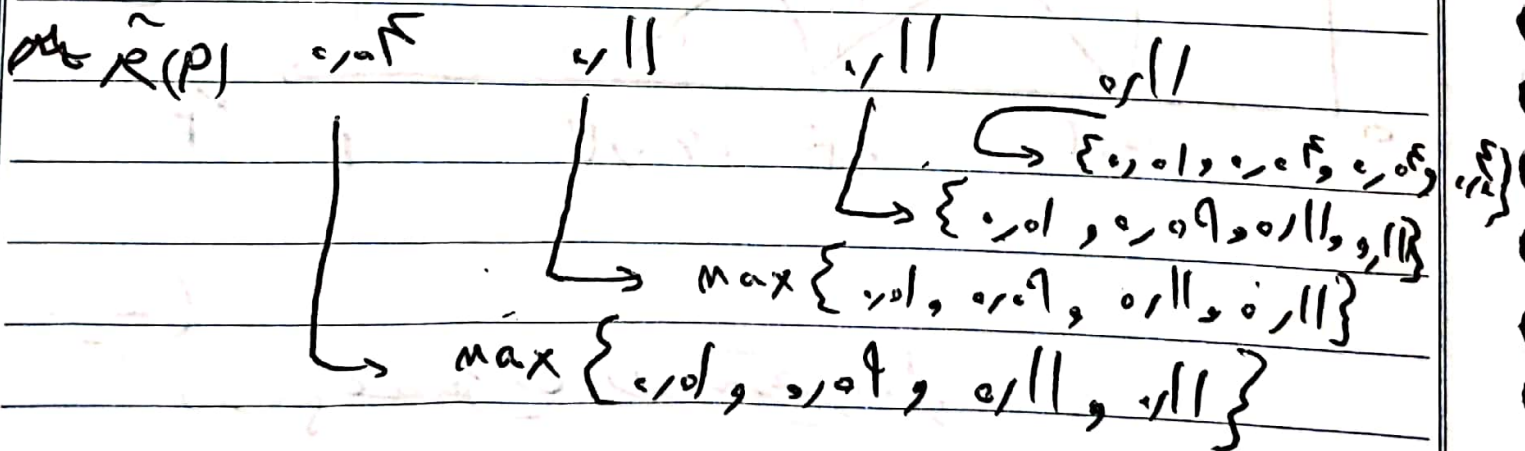 R̃(P) ۰٫۰۴ ۰٫۱۱ ۰٫۱۱ ۰٫۱۱
{۰٫۰۱ , ۰٫۰۴ , ۰٫۰۴ ,
{۰٫۰۱ , ۰٫۰۹ , ۰٫۱۱ , ۰٫۱۱}
max {۰٫۰۱ , ۰٫۰۹ , ۰٫۱۱ , ۰٫۱۱}
max {۰٫۰۱ , ۰٫۰۹ , ۰٫۱۱ , ۰٫۱۱}